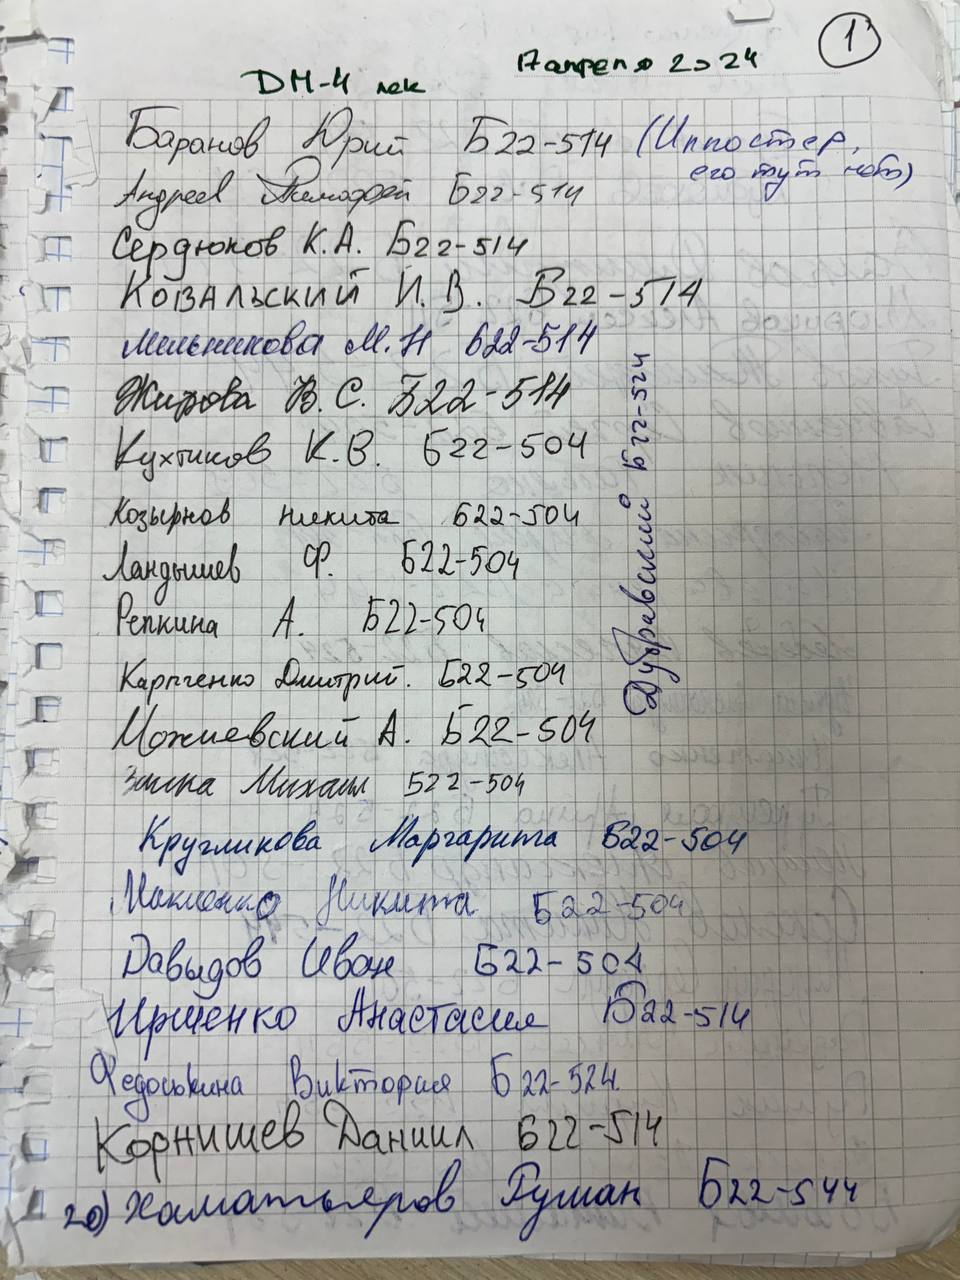 1
17 апреля 2024
DM-4 лек
Баранов Юрий Б22-514 (Импостер,
его тут нет)
Андреев Тимофей Б22-514
Сердюков К.А. Б22-514
Ковальский И.В. Б22-514
Мельникова М.Н Б22-514
Жирова В.С. Б22-514
Кухтиков К.В. Б22-504
Козырнов Никита Б22-504
Ландышев Ф. Б22-504
Репкина А. Б22-504
Карпченко Дмитрий. Б22-504
Можиевский А. Б22-504
Михаил Б22-504
Кругликова Маргарита Б22-504
Никита Б22-504
Давыдов Иван Б22-504
Иршенко Анастасия Б22-514
Федоськина Виктория Б22-524
Корнишев Даниил Б22-514
20) Хаматьяров Б22-544
Дубравский Б22-524